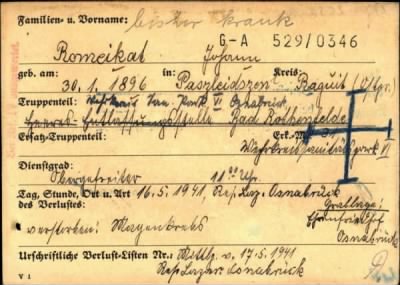 Familien- u. Vorname: bisher krank
G-A 529/0346
Romeikat Johann
geb. am: in: Kreis:
30. 1. 1896 Paszleidszen Ragnit (Ostpr.)
Truppenteil: Wehrkreis San. Park VI Osnabrück
Heeres-Entlassungsstelle Bad Rothenfelde
Ersatz-Truppenteil: Erk.-M.
Wehrkreissanitätspark VI
Dienstgrad:
Obergefreiter 11 00 Uhr
Tag, Stunde, Ort u. Art 16. 5. 1941, Res. Laz. Osnabrück
des Verlustes: Grablage:
verstorben: Magenkrebs Ehrenfriedhof
Osnabrück
Urschriftliche Verlust-Listen Nr.: Mittlg. v. 17. 5. 1941
Res. Lazar. Osnabrück
V 1